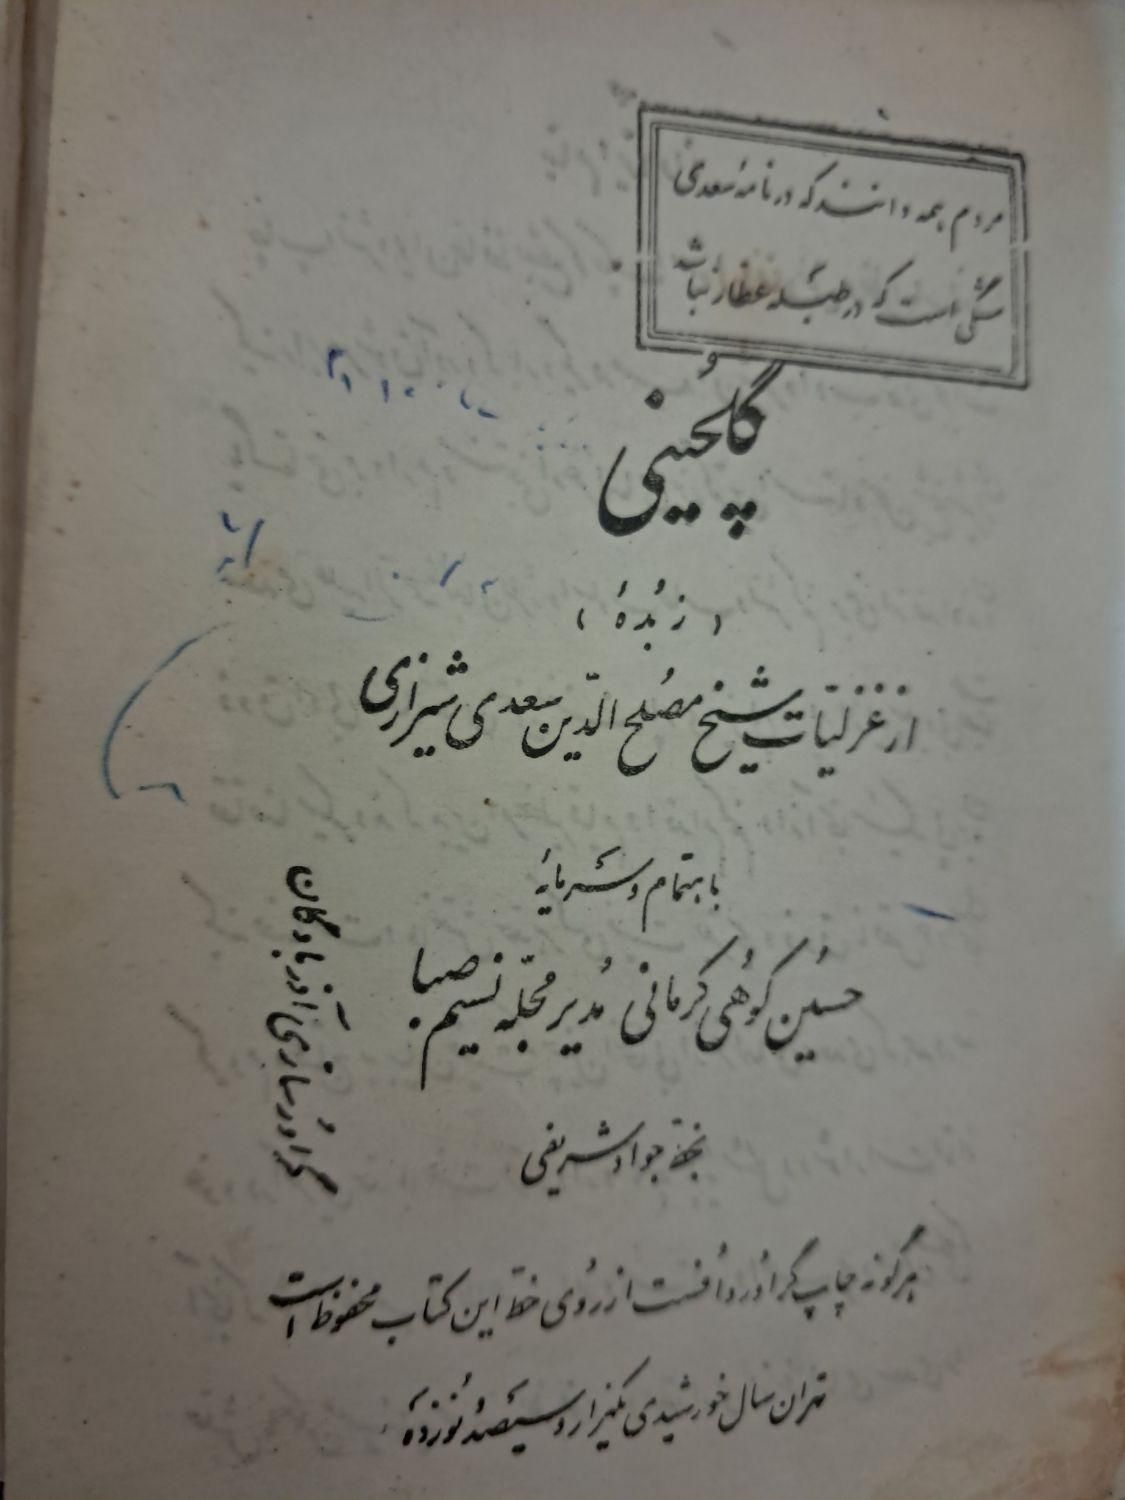 مردم همه دانند که در نامهٔ سعدی
مشکی است که در طبلهٔ عطار نباشد
گلچینی
(زُبدهٔ)
از غزلیّات شیخ مُصلح الدّین سعدی شیرازی
باهتمام و سرمایهٔ
حُسین کوُهی کرمانی مُدیر مجلّه نسیم صبا
بخطّ جواد شریفی
گراوُرسازی آذربادگان
هرگونه چاپ گراوُر و اُفست از رُوی خطّ این کتاب محفوظ است
تهران سال خورشیدی یکهزار و سیصد و نُوزده